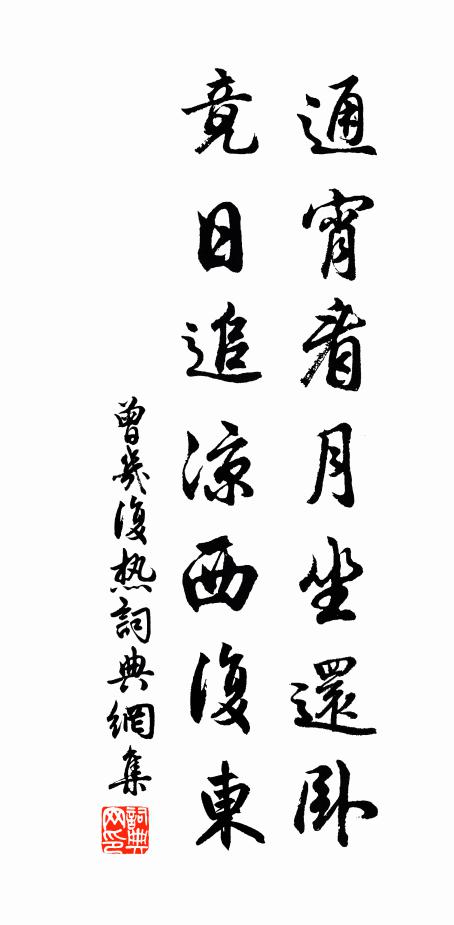 通宵看月坐還臥
竟日追涼西復東
曾幾復热詞典網集
詞典網印